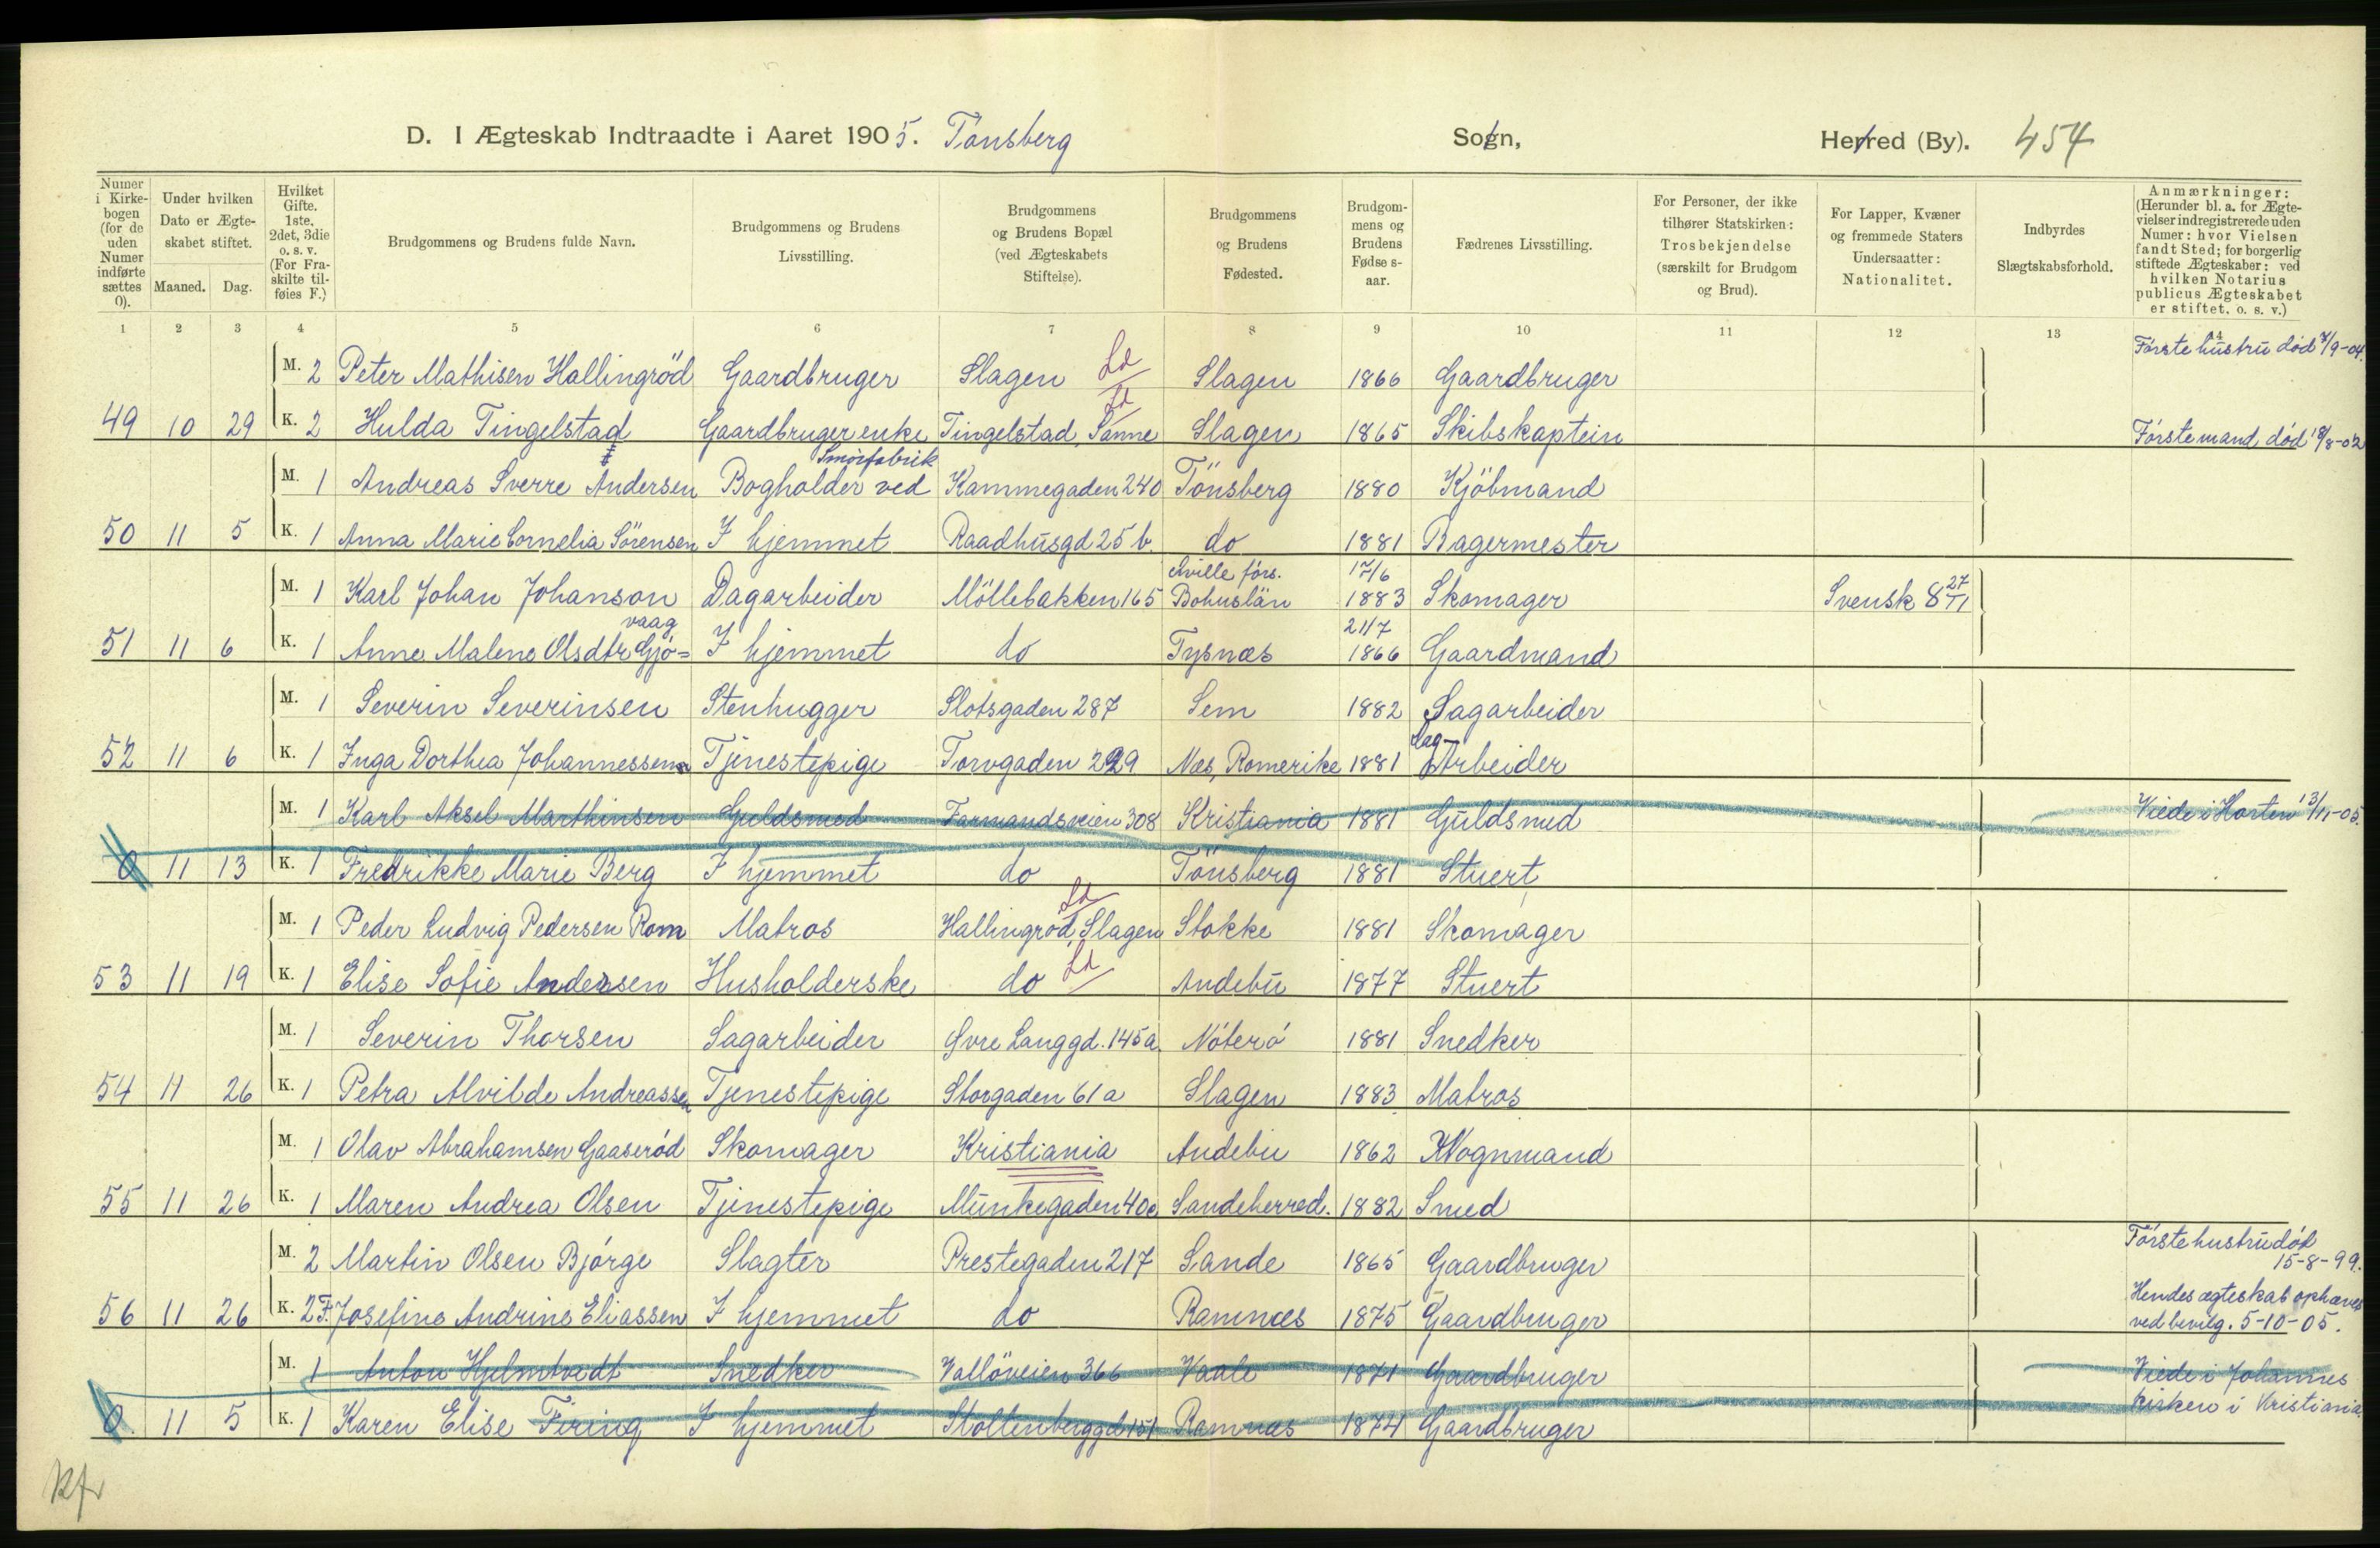 D. I Ægteskab Indtraadte i Aaret 1905. Tønsberg Sogn, Herred (By). 454
Numer i Kirkebogen (for de uden Numer indførte sættes 0).
Under hvilken Dato er Ægteskabet stiftet.
Maaned. Dag.
Hvilket Gifte. 1ste, 2det, 3die o. s. v. (For Fraskilte tilføies F.)
Brudgommens og Brudens fulde Navn.
Brudgommens og Brudens Livsstilling.
Brudgommens og Brudens Bopæl (ved Ægteskabets Stiftelse).
Brudgommens og Brudens Fødested.
Brudgommens og Brudens Fødselsaar.
Fædrenes Livsstilling.
For Personer, der ikke tilhører Statskirken: Trosbekjendelse (særskilt for Brudgom og Brud).
For Lapper, Kvæner og fremmede Staters Undersaatter: Nationalitet.
Indbyrdes Slægtskabsforhold.
Anmærkninger: (Herunder bl. a. for Ægtevielser indregistrerede uden Numer: hvor Vielsen fandt Sted; for borgerlig stiftede Ægteskaber: ved hvilken Notarius publicus Ægteskabet er stiftet, o. s. v.)
1 2 3 4 5 6 7 8 9 10 11 12 13 14
M. 2 Peter Mathisen Hallingröd Gaardbruger Slagen Ld Slagen 1866 Gaardbruger Første hustru død 7/9-04.
49 10 29 K. 2 Hulda Tingelstad Gaardbruger enke Tingelstad, Sanne Ld Slagen 1865 Skibskaptein Første mand død 18/8-02
M. 1 Andreas Sverre Andersen Bogholder ved Smörfabrik Kammegaden 240 Tönsberg 1880 Kjöbmand
50 11 5 K. 1 Anna Marie Cornelia Sörensen I hjemmet Raadhusgd 25 b. do 1881 Bagermester
M. 1 Karl Johan Johanson Dagarbeider Möllebakken 165 Sville förs. Bohuslän 17/6 1883 Skomager Svensk 8 27/11
51 11 6 K. 1 Anne Malene Olsdtr Gjö=vaag I hjemmet do Tysnæs 21/7 1866 Gaardmand
M. 1 Severin Severinsen Stenhugger Slotsgaden 287 Sem 1882 Sagarbeider
52 11 6 K. 1 Inga Dorthea Johannessen Tjenestepige Torvgaden 229 Næs, Romerike 1881 Sag-Arbeider
M. 1 Karl Aksel Marthinsen Guldsmed Farmandsveien 308 Kristiania 1881 Guldsmed Viede i Horten 13/11-05.
0 11 13 K. 1 Fredrikke Marie Berg I hjemmet do Tönsberg 1881 Stuert
M. 1 Peder Ludvig Pedersen Rom Matros Hallingröd, Slagen Ld Stokke 1881 Skomager
53 11 19 K. 1 Elise Sofie Andersen Husholderske do Ld Andebu 1877 Stuert
M. 1 Severin Thorsen Sagarbeider Øvre Langgd. 145 a. Nöterö 1881 Snedker
54 11 26 K. 1 Petra Alvilde Andreassen Tjenestepige Storgaden 61 a Slagen 1883 Matros
M. 1 Olav Abrahamsen Gaaseröd Skomager Kristiania Andebu 1862 Vognmand
55 11 26 K. 1 Maren Andrea Olsen Tjenestepige Munkegaden 40 c Sandeherred. 1882 Smed
M. 2 Martin Olsen Bjørge Slagter Prestegaden 217 Sande 1865 Gaardbruger Förste hustru död 15-8-99.
56 11 26 K. 2 F. Josefine Andrine Eliassen I hjemmet do Ramnæs 1875 Gaardbruger Hendes ægteskab ophævet ved bevilg. 5-10-05.
M. 1 Anton Hjelmtvedt Snedker Vallöveien 366 Vaale 1871 Gaardbruger Viede i Johannes
0 11 5 K. 1 Karen Elise Firing I hjemmet Stoltenberggd 151 Ramnæs 1874 Gaardbruger kirken i Kristiania.